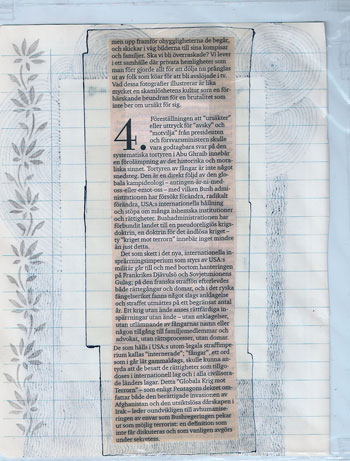 men upp framför ohyggligheterna de begår,
och skickar i väg bilderna till sina kompisar
och familjer. Ska vi bli överraskade? Vi lever
i ett samhälle där privata hemligheter som
man förr gjorde allt för att dölja nu pränglas
ut av folk som köar för att bli avslöjade i tv.
Vad dessa fotografier illustrerar är lika
mycket en skamlöshetens kultur som en för-
härskande beundran för en brutalitet som
inte ber om ursäkt för sig.
4. Föreställningen att "ursäkter"
eller uttryck för "avsky" och
"motvilja" från presidenten
och försvarsministern skulle
vara godtagbara svar på den
systematiska tortyren i Abu Ghraib innebär
en förolämpning av det historiska och mora-
liska sinnet. Tortyren av fångar är inte något
snedsteg. Den är en direkt följd av den glo-
bala kampideologi – antingen-är-ni-med-
oss-eller-emot-oss – med vilken Bush admi-
nistrationen har försökt förändra, radikalt
förändra, USA:s internationella hållning
och stöpa om många inhemska institutioner
och rättigheter. Bushadministrationen har
förbundit landet till en pseudoreligiös krigs-
doktrin, en doktrin för det ändlösa kriget –
ty "kriget mot terrorn" innebär inget mindre
än just detta.
Det som skett i det nya, internationella in-
spärrningsimperium som styrs av USA:s
militär går till och med bortom hanteringen
på Frankrikes Djävulsö och Sovjetunionens
Gulag; på den franska straffön erfordrades
både rättegångar och domar, och i det ryska
fängelseriket fanns något slags anklagelse
och straffet utmättes på ett begränsat antal
år. Ett krig utan ände anses rättfärdiga in-
spärrningar utan ände – utan anklagelser,
utan utlämnande av fångarnas namn eller
någon tillgång till familjemedlemmar och
advokat, utan rättsprocesser, utan domar.
De som hålls i USA:s utom-legala straffimpe-
rium kallas "internerade"; "fångar", ett ord
som i går lät gammaldags, skulle kunna an-
tyda att de besatt de rättigheter som tillgo-
doses i internationell lag och i alla civilisera-
de länders lagar. Detta "Globala Krig mot
Terrorn" – som enligt Pentagons dekret om-
fattar både den berättigade invasionen av
Afghanistan och den utsiktslösa dårskapen i
Irak – leder oundvikligen till avhumanise-
ringen av envar som Bushregeringen pekar
ut som möjlig terrorist: en definition som
inte får diskuteras och som vanligen avgörs
under sekretess.